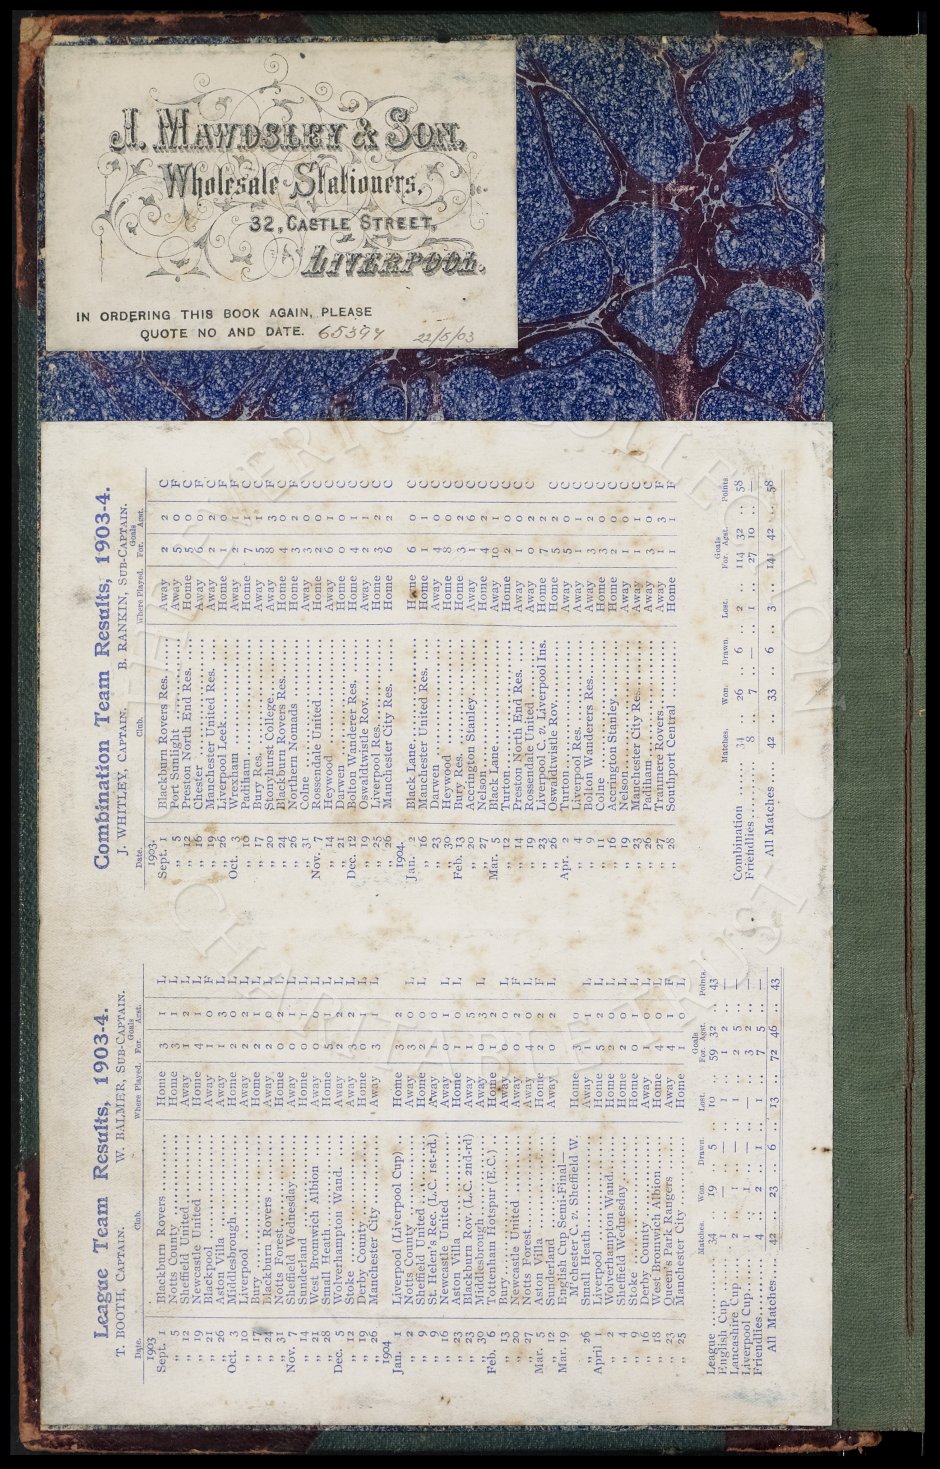 J. MAWDSLEY & SON,
Wholesale Stationers,
32, CASTLE STREET,
LIVERPOOL.
IN ORDERING THIS BOOK AGAIN, PLEASE
QUOTE NO AND DATE. 65394 22/5/03
League Team Results, 1903-4.
T. BOOTH, CAPTAIN. W. BALMER, SUB-CAPTAIN.
Date. Club. Where Played. Goals For. Agst.
1903
Sept. 1 Blackburn Rovers Home 3 1 L
,, 5 Notts County Home 3 1 L
,, 12 Sheffield United Away 1 2 L
,, 19 Newcastle United Home 4 1 L
,, 21 Blackpool Away 1 0 F
,, 26 Aston Villa Away 1 3 L
Oct. 3 Middlesbrough Home 2 0 L
,, 10 Liverpool Away 2 2 L
,, 17 Bury Home 2 1 L
,, 24 Blackburn Rovers Away 2 0 L
,, 31 Notts Forest Home 0 2 L
Nov. 7 Sheffield Wednesday Away 0 1 L
,, 14 Sunderland Home 0 1 L
,, 21 West Bromwich Albion Away 0 0 L
,, 28 Small Heath Home 5 1 L
Dec. 5 Wolverhampton Wand. Away 2 2 L
,, 12 Stoke Away 3 2 L
,, 19 Derby County Home 0 1 L
,, 26 Manchester City Away 3 1 L
1904
Jan. 1 Liverpool (Liverpool Cup) Home 3 2
,, 2 Notts County Away 3 0 L
,, 9 Sheffield United Home 2 0 L
,, 9 St. Helen's Rec. (L.C. 1st-rd.) Away 1 0
,, 16 Newcastle United Away 0 1 L
,, 23 Aston Villa Home 1 0 L
,, 23 Blackburn Rov. (L.C. 2nd-rd) Away 1 5
,, 30 Middlesbrough Away 0 3 L
Feb. 6 Tottenham Hotspur (E.C.) Home 1 2
,, 13 Bury Away 0 0 L
,, 20 Newcastle United Away 0 2 F
,, 27 Notts Forest Away 4 0 L
Mar. 5 Aston Villa Home 2 2 F
,, 12 Sunderland Away 0 2 L
Mar. 19 English Cup Semi-Final—
M'chester C. v. Sheffield W. Home 3 0
,, 26 Small Heath Away 1 1 L
April 1 Liverpool Home 5 2 L
,, 2 Wolverhampton Wand. Home 2 0 L
,, 4 Sheffield Wednesday Home 2 0 L
,, 9 Stoke Home 0 1 L
,, 16 Derby County Away 1 0 L
,, 18 West Bromwich Albion Home 4 0 L
,, 23 Queen's Park Rangers Away 4 1 F
,, 25 Manchester City Home 1 0 L
Matches. Won. Drawn. Lost. Goals For. Agst. Points.
League 34 .. 19 .. 5 .. 10 .. 59 32 .. 43
English Cup 1 .. — .. — .. 1 .. 1 2 .. —
Lancashire Cup 2 .. 1 .. — .. 1 .. 2 5 .. —
Liverpool Cup 1 .. 1 .. — .. — .. 3 2 .. —
Friendlies 4 .. 2 .. 1 .. 1 .. 7 5 .. —
All Matches 42 .. 23 .. 6 .. 13 .. 72 46 .. 43
Combination Team Results, 1903-4.
J. WHITLEY, CAPTAIN. B. RANKIN, SUB-CAPTAIN.
Date. Club. Where Played. Goals For. Agst.
1903.
Sept. 1 Blackburn Rovers Res. Away 2 2 C
,, 5 Port Sunlight Away 5 0 F
,, 12 Preston North End Res. Home 5 0 C
,, 16 Chester Away 6 0 F
,, 19 Manchester United Res. Away 2 2 C
,, 26 Liverpool Leek Home 1 0 F
Oct. 3 Wrexham Away 2 1 F
,, 10 Padiham Home 7 1 C
,, 17 Bury Res. Away 5 1 C
,, 20 Stonyhurst College Away 8 3 F
,, 24 Blackburn Rovers Res. Home 4 0 C
,, 26 Northern Nomads Home 3 2 F
,, 31 Colne Away 3 0 C
Nov. 7 Rossendale United Home 2 0 C
,, 14 Heywood Away 6 1 C
,, 21 Darwen Home 0 0 C
Dec. 12 Bolton Wanderer Res. Home 4 1 C
,, 19 Oswaldtwistle Rov. Away 2 1 C
,, 25 Liverpool Res. Home 3 2 C
,, 26 Manchester City Res. Home 6 2 C
1904.
Jan. 2 Black Lane Home 6 0 C
,, 16 Manchester United Res. Home 1 1 C
,, 23 Darwen Away 4 0 C
,, 30 Heywood Home 8 0 C
Feb. 13 Bury Res. Home 3 2 C
,, 20 Accrington Stanley Away 1 6 C
,, 27 Nelson Home 4 2 C
Mar. 5 Black Lane Away 10 1 C
,, 12 Turton Home 2 0 C
,, 14 Preston North End Res. Away 1 0 C
,, 19 Rossendale United Away 0 2 C
,, 23 Liverpool C. v. Liverpool Ins. Home 7 2
,, 26 Oswaldtwistle Rov. Home 5 2 C
Apr. 2 Turton Away 5 0 C
,, 4 Liverpool Res. Away 1 1 C
,, 9 Bolton Wanderers Res. Away 3 2 C
,, 11 Colne Home 3 0 C
,, 16 Accrington Stanley Home 2 0 C
,, 19 Nelson Away 1 0 C
,, 23 Manchester City Res. Away 1 1 C
,, 26 Padiham Away 3 0 C
,, 27 Tranmere Rovers Away 1 3 F
,, 28 Southport Central Home 1 1 F
Matches. Won. Drawn. Lost. Goals For. Agst. Points
Combination 34 .. 26 .. 6 .. 2 .. 114 32 .. 58
Friendlies 8 .. 7 .. — .. 1 .. 27 10 .. —
All Matches 42 .. 33 .. 6 .. 3 .. 141 42 .. 58
THE EVERTON COLLECTION
CHARITABLE TRUST